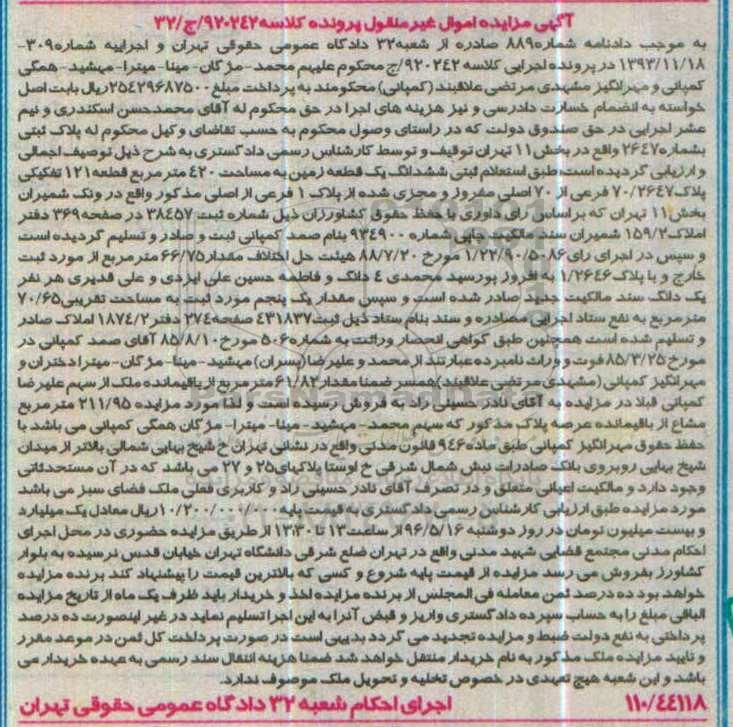 آگهی مزایده اموال غیر منقول پرونده کلاسه ۹۲۰۲۴۲/ج/۳۲
به موجب دادنامه شماره۸۸۹ صادره از شعبه۳۲ دادگاه عمومی حقوقی تهران و اجراییه شماره۳۰۹-
۱۳۹۳/۱۱/۱۸ در پرونده اجرایی کلاسه ۹۲۰۲۴۲/ج محکوم علیهم محمد-مژگان- مینا- میترا- مهشید- همگی
کمپانی و مهرانگیز مشهدی مرتضی علاقبند (کمپانی) محکومند به پرداخت مبلغ ۲۵۴۲۹۶۸۷۵۰۰ریال بابت اصل
خواسته به انضمام خسارت دادرسی و نیز هزینه های اجرا در حق محکوم له آقای محمدحسن اسکندری و نیم
عشر اجرایی در حق صندوق دولت که در راستای وصول محکوم به حسب تقاضای وکیل محکوم له پلاک ثبتی
بشماره۲۶۴۷ واقع در بخش۱۱ تهران توقیف و توسط کارشناس رسمی دادگستری به شرح ذیل توصیف اجمالی
و ارزیابی گردیده است. طبق استعلام ثبتی ششدانگ یک قطعه زمین به مساحت ۴۲۰ متر مربع قطعه ۱۲۱ تفکیکی
پلاک۷۰/۲۶۴۷ فرعی از ۷۰ اصلی مفروز و مجزی شده از پلاک ۱ فرعی از اصلی مذکور واقع در ونک شمیران
بخش۱۱ تهران که براساس رای داوری با حفظ حقوق کشاورزان ذیل شماره ثبت ۳۸۴۵۷ در صفحه۳۶۹ دفتر
املاک۱۵۹/۲ شمیران سند مالکیت چاپی شماره ۹۳۴۹۰۰ بنام صمد کمپانی ثبت و صادر و تسلیم گردیده است
و سپس در اجرای رای۱/۲۲/۹۰/۵۰۸۶ مورخ ۸۸/۷/۲۰ هیئت حل اختلاف مقدار۶۶/۷۵متر مربع از مورد ثبت
خارج و با پلاک ۱/۲۶۴۶ به فیروز پورسید محمدی ۴ دانگ و فاطمه حسین علی ایزدی و علی قدیری هر نفر
یک دانگ سند مالکیت جدید صادر شده است و سپس مقدار یک پنجم مورد ثبت به مساحت تقریبی۷۰/۶۵
متر مربع به نفع ستاد اجرایی مصادره و سند بنام ستاد ذیل ثبت۴۳۱۸۳۷ صفحه۲۷۴ دفتر۱۸۷۴/۲ املاک صادر
و تسلیم شده است همچنین طبق گواهی انحصار وراثت به شماره ۵۰۶ مورخ ۸۵/۸/۱۰ آقای صمد کمپانی در
مورخ ۸۵/۳/۲۵ فوت و وراث نامبرده عبارتند از محمد و علیرضا (پسران) مهشید- مینا- مژگان- میترا دختران و
مهرانگیز کمپانی (مشهدی مرتضی علاقبند) همسر ضمنا مقدار۶۱/۸۲متر مربع از باقیمانده ملک از سهم علیرضا
کمپانی قبلا در مزایده به آقای نادر حسینی راد به فروش رسیده است و لذا مورد مزایده ۲۱۱/۹۵ متر مربع
مشاع از باقیمانده عرصه پلاک مذکور که سهم محمد- مهشید- مینا- میترا- مژگان همگی کمپانی می باشد با
حفظ حقوق مهرانگیز کمپانی طبق ماده۹۴۶ قانون مدنی واقع در نشانی تهران خ شیخ بهایی شمالی بالاتر از میدان
شیخ بهایی روبروی بانک صادرات نبش شمال شرقی خ اوستا پلاکهای۲۵ و ۲۷ می باشد که در آن مستحدثاتی
وجود دارد و مالکیت اعیانی متعلق و در تصرف آقای نادر حسینی راد و کاربری فعلی ملک فضای سبز می باشد
مورد مزایده طبق ارزیابی کارشناس رسمی دادگستری به قیمت پایه ۱۰/۲۰۰/۰۰۰/۰۰۰ریال معادل یک میلیارد
و بیست میلیون تومان در روز دوشنبه ۹۶/۵/۱۶ از ساعت۱۳ تا ۱۳:۳۰ از طریق مزایده حضوری در محل اجرای
احکام مدنی مجتمع قضایی شهید مدنی واقع در تهران ضلع شرقی دانشگاه تهران خیابان قدس نرسیده به بلوار
کشاورز بفروش می رسد مزایده از قیمت پایه شروع و کسی که بالاترین قیمت را پیشنهاد کند برنده مزایده
خواهد بود ده درصد ثمن معامله فی المجلس از برنده مزایده اخذ و خریدار باید ظرف یک ماه از تاریخ مزایده
الباقی مبلغ را به حساب سپرده دادگستری واریز و قبض آنرا به این اجرا تسلیم نماید در غیر اینصورت ده درصد
پرداختی به نفع دولت ضبط و مزایده تجدید می گردد بدیهی است در صورت پرداخت کل ثمن در موعد مقرر
و تایید مزایده ملک مذکور به نام خریدار منتقل خواهد شد ضمنا هزینه انتقال سند رسمی به عهده خریدار می
باشد و این شعبه هیچ تعهدی در خصوص تخلیه و تحویل ملک موصوف ندارد.
۱۱۰/۴۴۱۱۸ اجرای احکام شعبه ۳۲ دادگاه عمومی حقوقی تهران